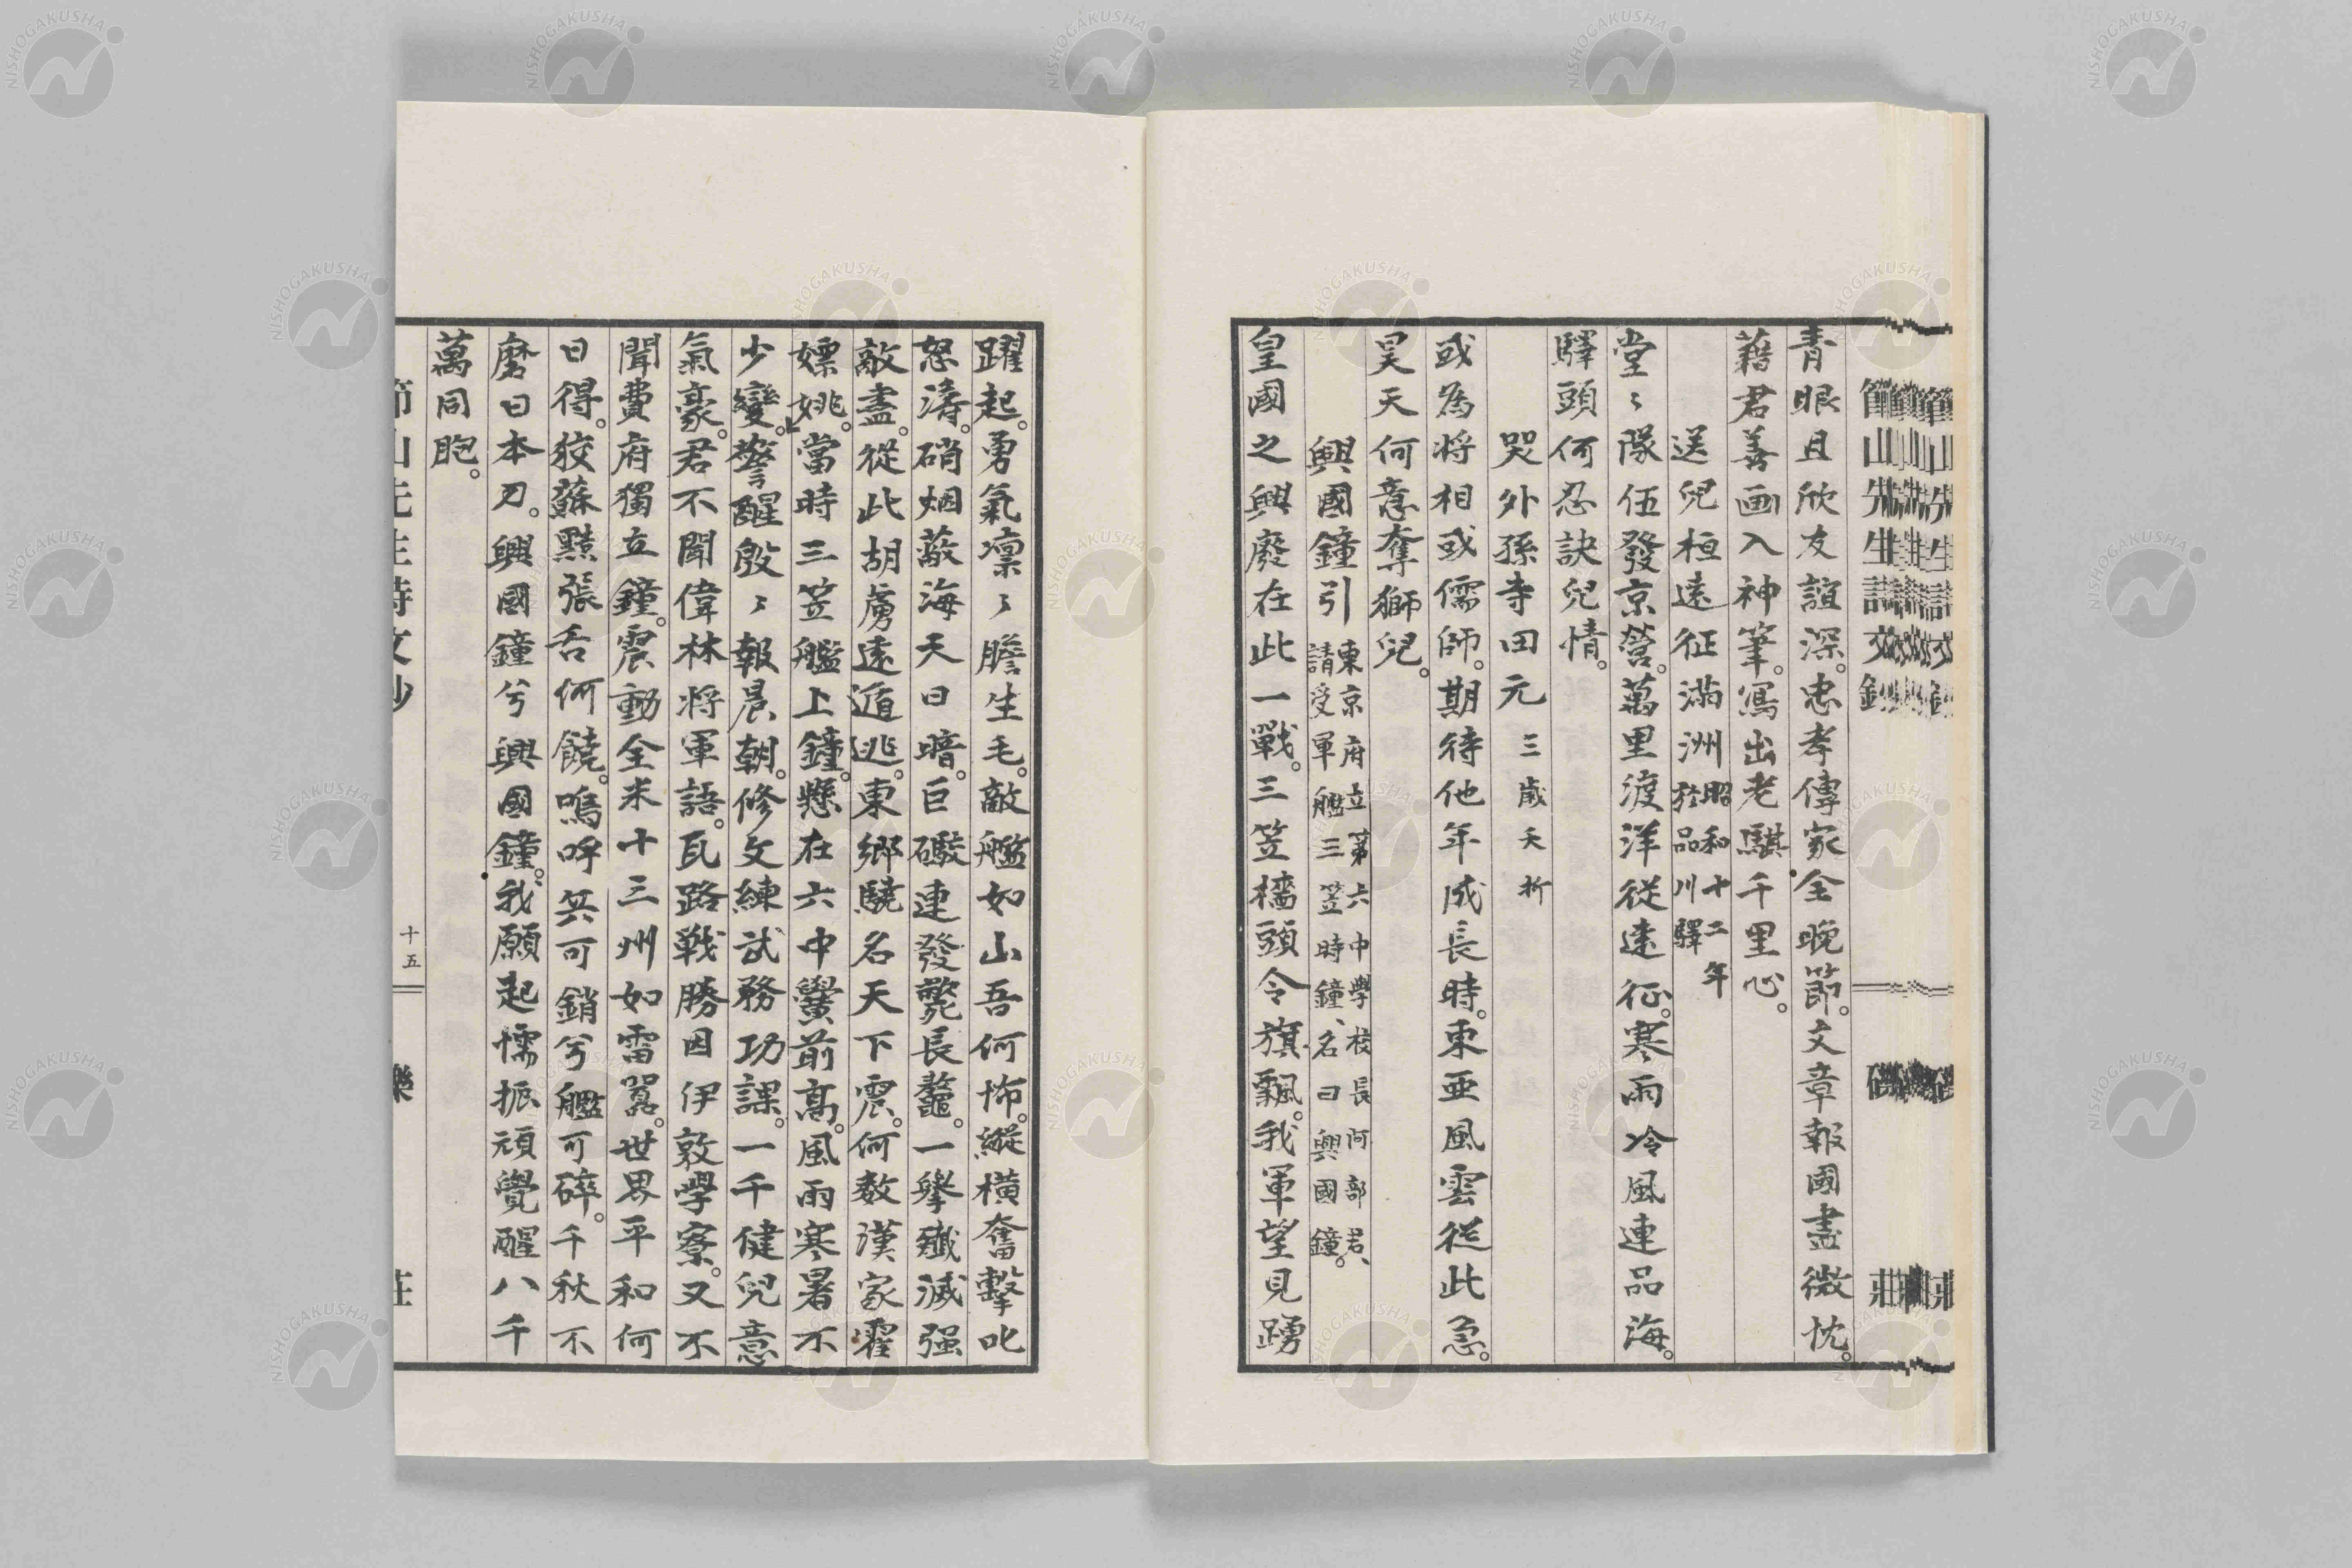 青眼且欣友誼深。忠孝傳家全晚節。文章報國盡微忱。
藉君善画入神筆。寫出老騏千里心。
送兒桓遠征滿洲 昭和十二年
於品川驛
堂〻隊伍發京營。萬里渡洋從遠征。寒雨冷風連品海。
驛頭何忍訣兒情。
哭外孫寺田元 三歲夭折
或為将相或儒師。期待他年成長時。東亜風雲從此急。
昊天何意奪獅兒。
興國鐘引 東京府立第六中學校長阿部君、
請受軍艦三笠時鐘、名曰興國鐘。
皇國之興廢在此一戰。三笠檣頭令旗飄。我軍望見踴
躍起。勇氣凛〻膽生毛。敵艦如山吾何怖。縱橫奮擊叱
怒濤。硝烟蔽海天日暗。巨礮連發斃長鼇。一擧殲滅强
敵盡。從此胡虜遠遁逃。東郷驍名天下震。何数漢家霍
嫖姚。當時三笠艦上鐘。懸在六中黌前高。風雨寒暑不
少變。警醒殷〻報晨朝。修文練武務功課。一千健兒意
氣豪。君不聞偉林将軍語。瓦路戦勝因伊敦學寮。又不
聞費府獨立鐘。震動全米十三州如雷嚣。世界平和何
日得。狡蘇黠張舌何饒。嗚呼兵可銷兮艦可碎。千秋不
磨日本刀。興國鐘兮興國鐘。我願起懦振頑覺醒八千
萬同胞。
節山先生詩文鈔
十五
樂
莊